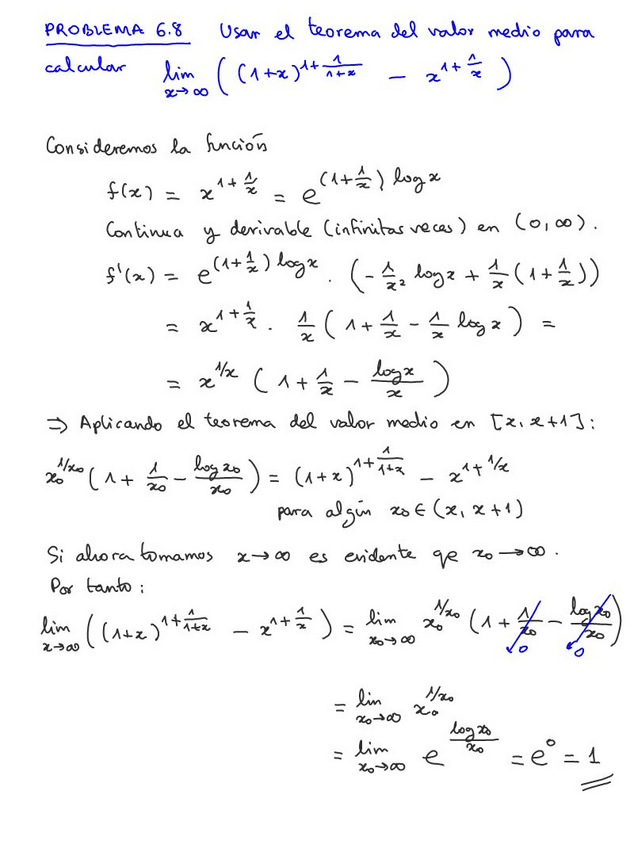 PROBLEMA 6.8 Usar el teorema del valor medio para
calcular lim_{x→∞} ( (1+x)^{1+\frac{1}{1+x}} − x^{1+\frac{1}{x}} )
Consideremos la función
f(x) = x^{1+\frac{1}{x}} = e^{(1+\frac{1}{x}) log x}
Continua y derivable (infinitas veces) en (0,∞).
f'(x) = e^{(1+\frac{1}{x}) log x} · (−\frac{1}{x^2} log x + \frac{1}{x}(1+\frac{1}{x}))
= x^{1+\frac{1}{x}} · \frac{1}{x} (1+\frac{1}{x} − \frac{1}{x} log x) =
= x^{1/x} (1+\frac{1}{x} − \frac{log x}{x})
⇒ Aplicando el teorema del valor medio en [x, x+1]:
x_0^{1/x_0} (1+\frac{1}{x_0} − \frac{log x_0}{x_0}) = (1+x)^{1+\frac{1}{1+x}} − x^{1+1/x}
para algún x_0 ∈ (x, x+1)
Si ahora tomamos x→∞ es evidente qe x_0→∞.
Por tanto:
lim_{x→∞} ( (1+x)^{1+\frac{1}{1+x}} − x^{1+\frac{1}{x}} ) = lim_{x_0→∞} x_0^{1/x_0} (1+\frac{1}{x_0} − \frac{log x_0}{x_0})
0 0
= lim_{x_0→∞} x_0^{1/x_0}
= lim_{x_0→∞} e^{\frac{log x_0}{x_0}} = e^0 = 1